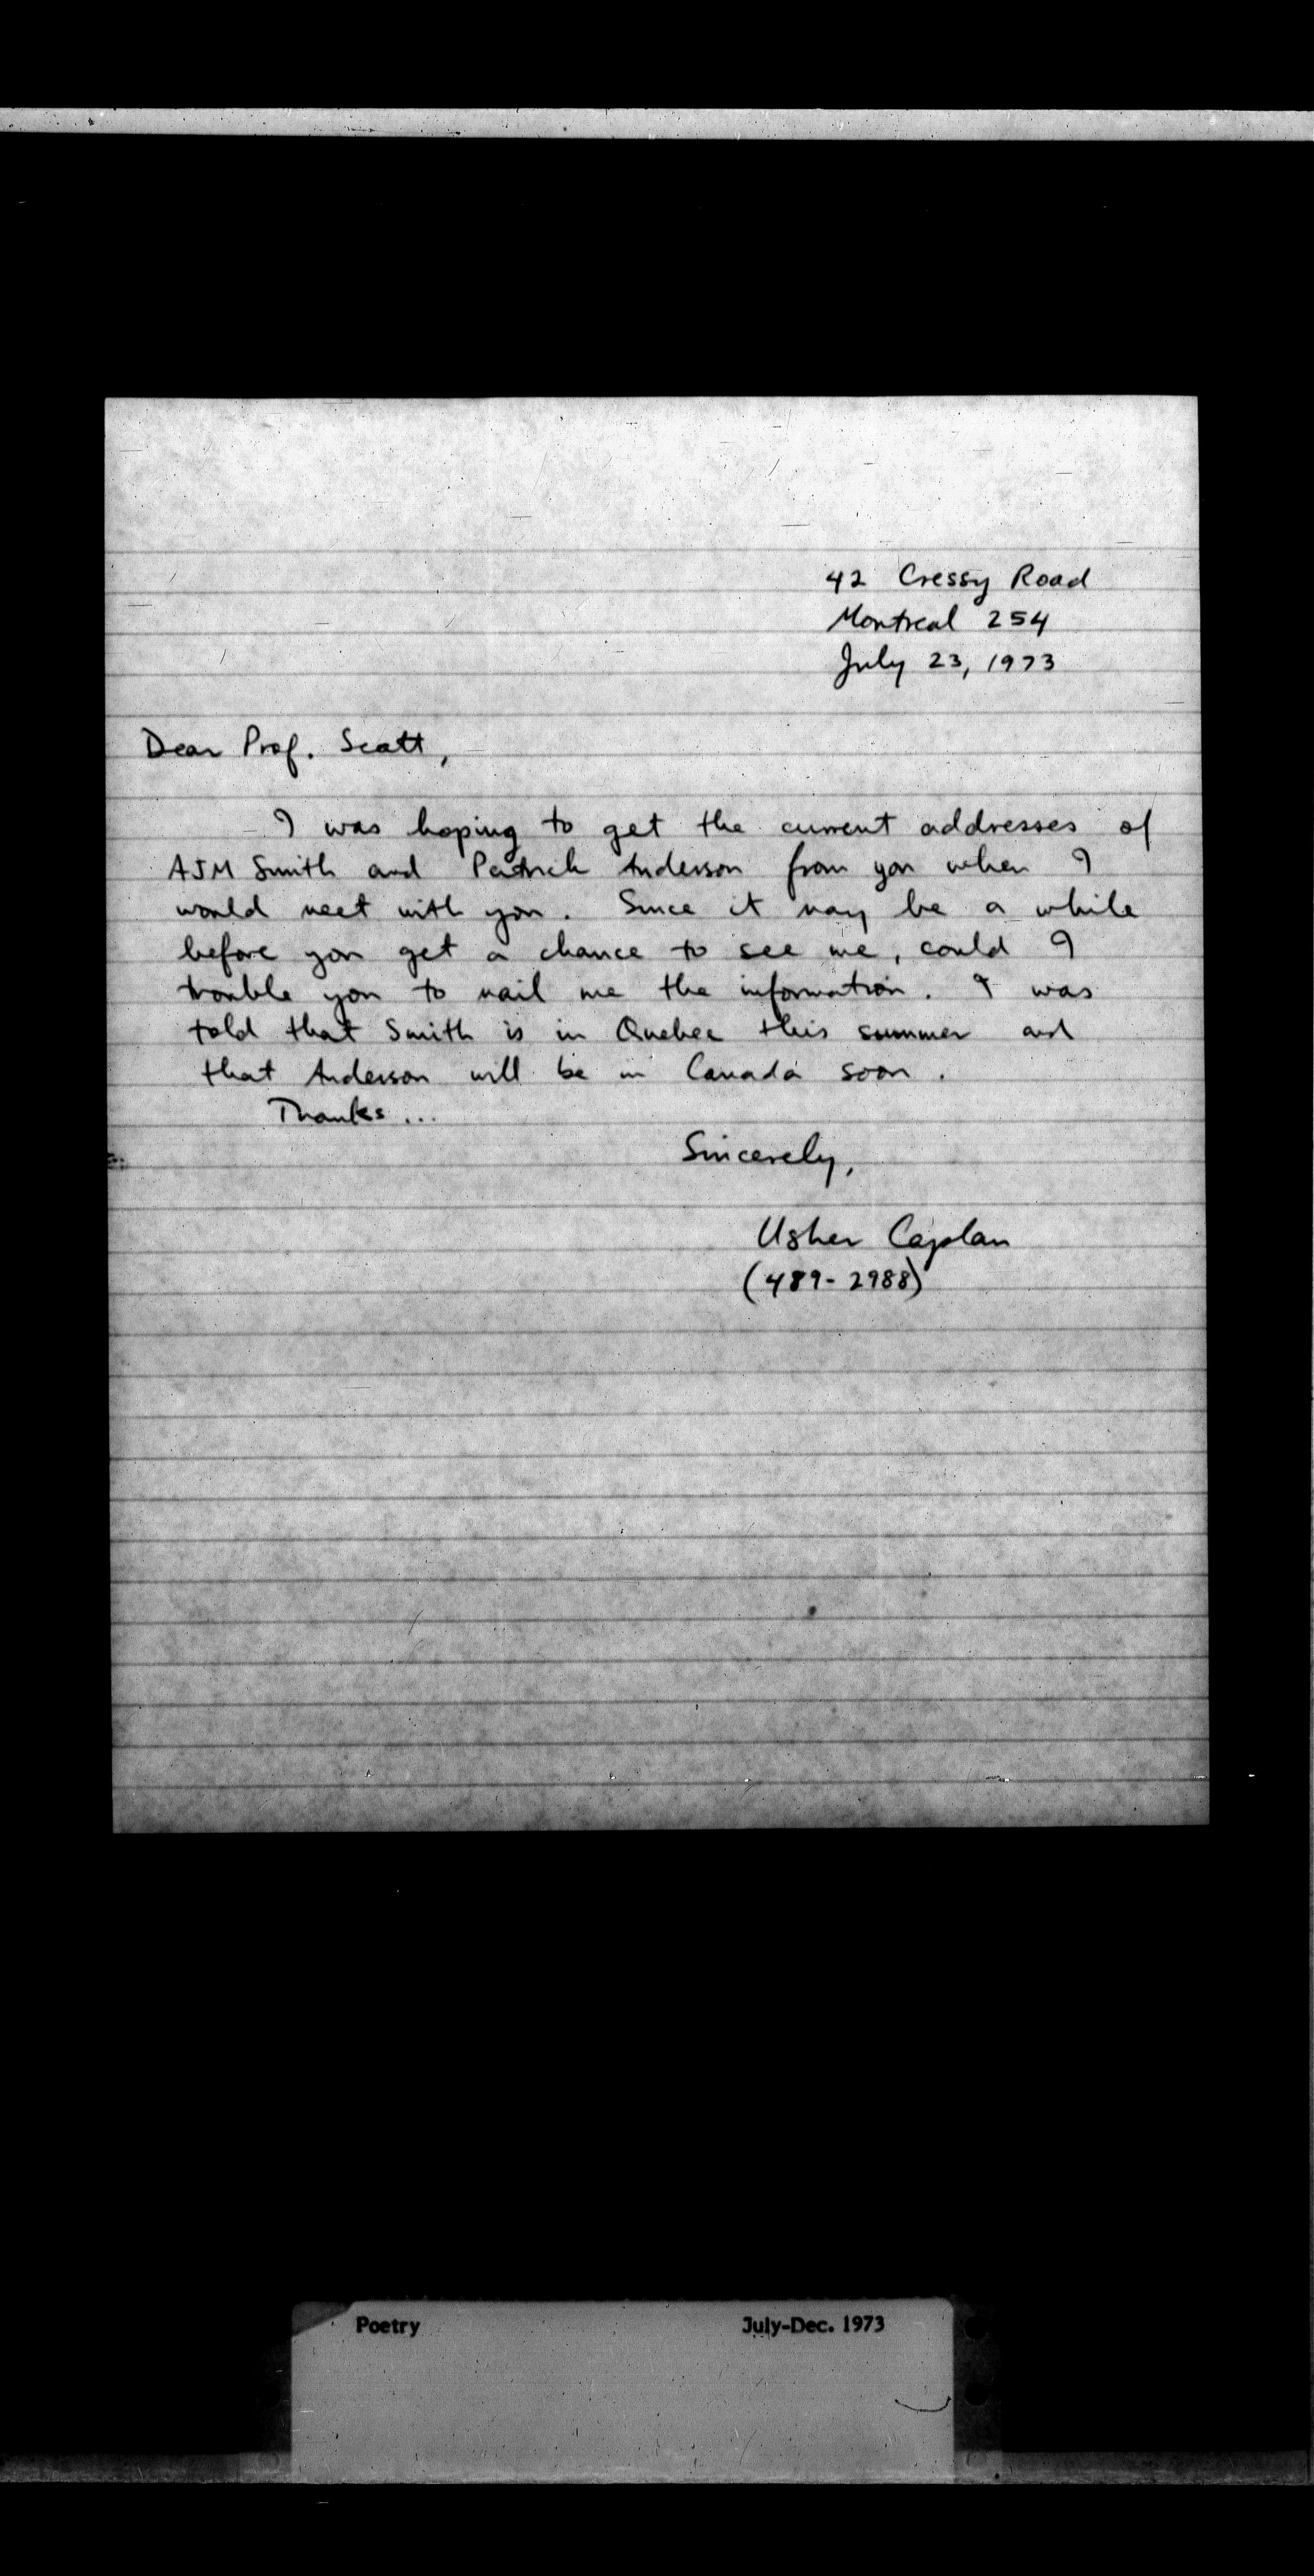 42 Cressy Road
Montreal 254
July 23, 1973
Dear Prof. Scott,
I was hoping to get the current addresses of
AJM Smith and Patrick Anderson from you when I
would meet with you. Since it may be a while
before you get a chance to see me, could I
trouble you to mail me the information. I was
told that Smith is in Quebec this summer and
that Anderson will be in Canada soon.
Thanks...
Sincerely,
Usher Caplan
(489-2988)
Poetry July-Dec. 1973